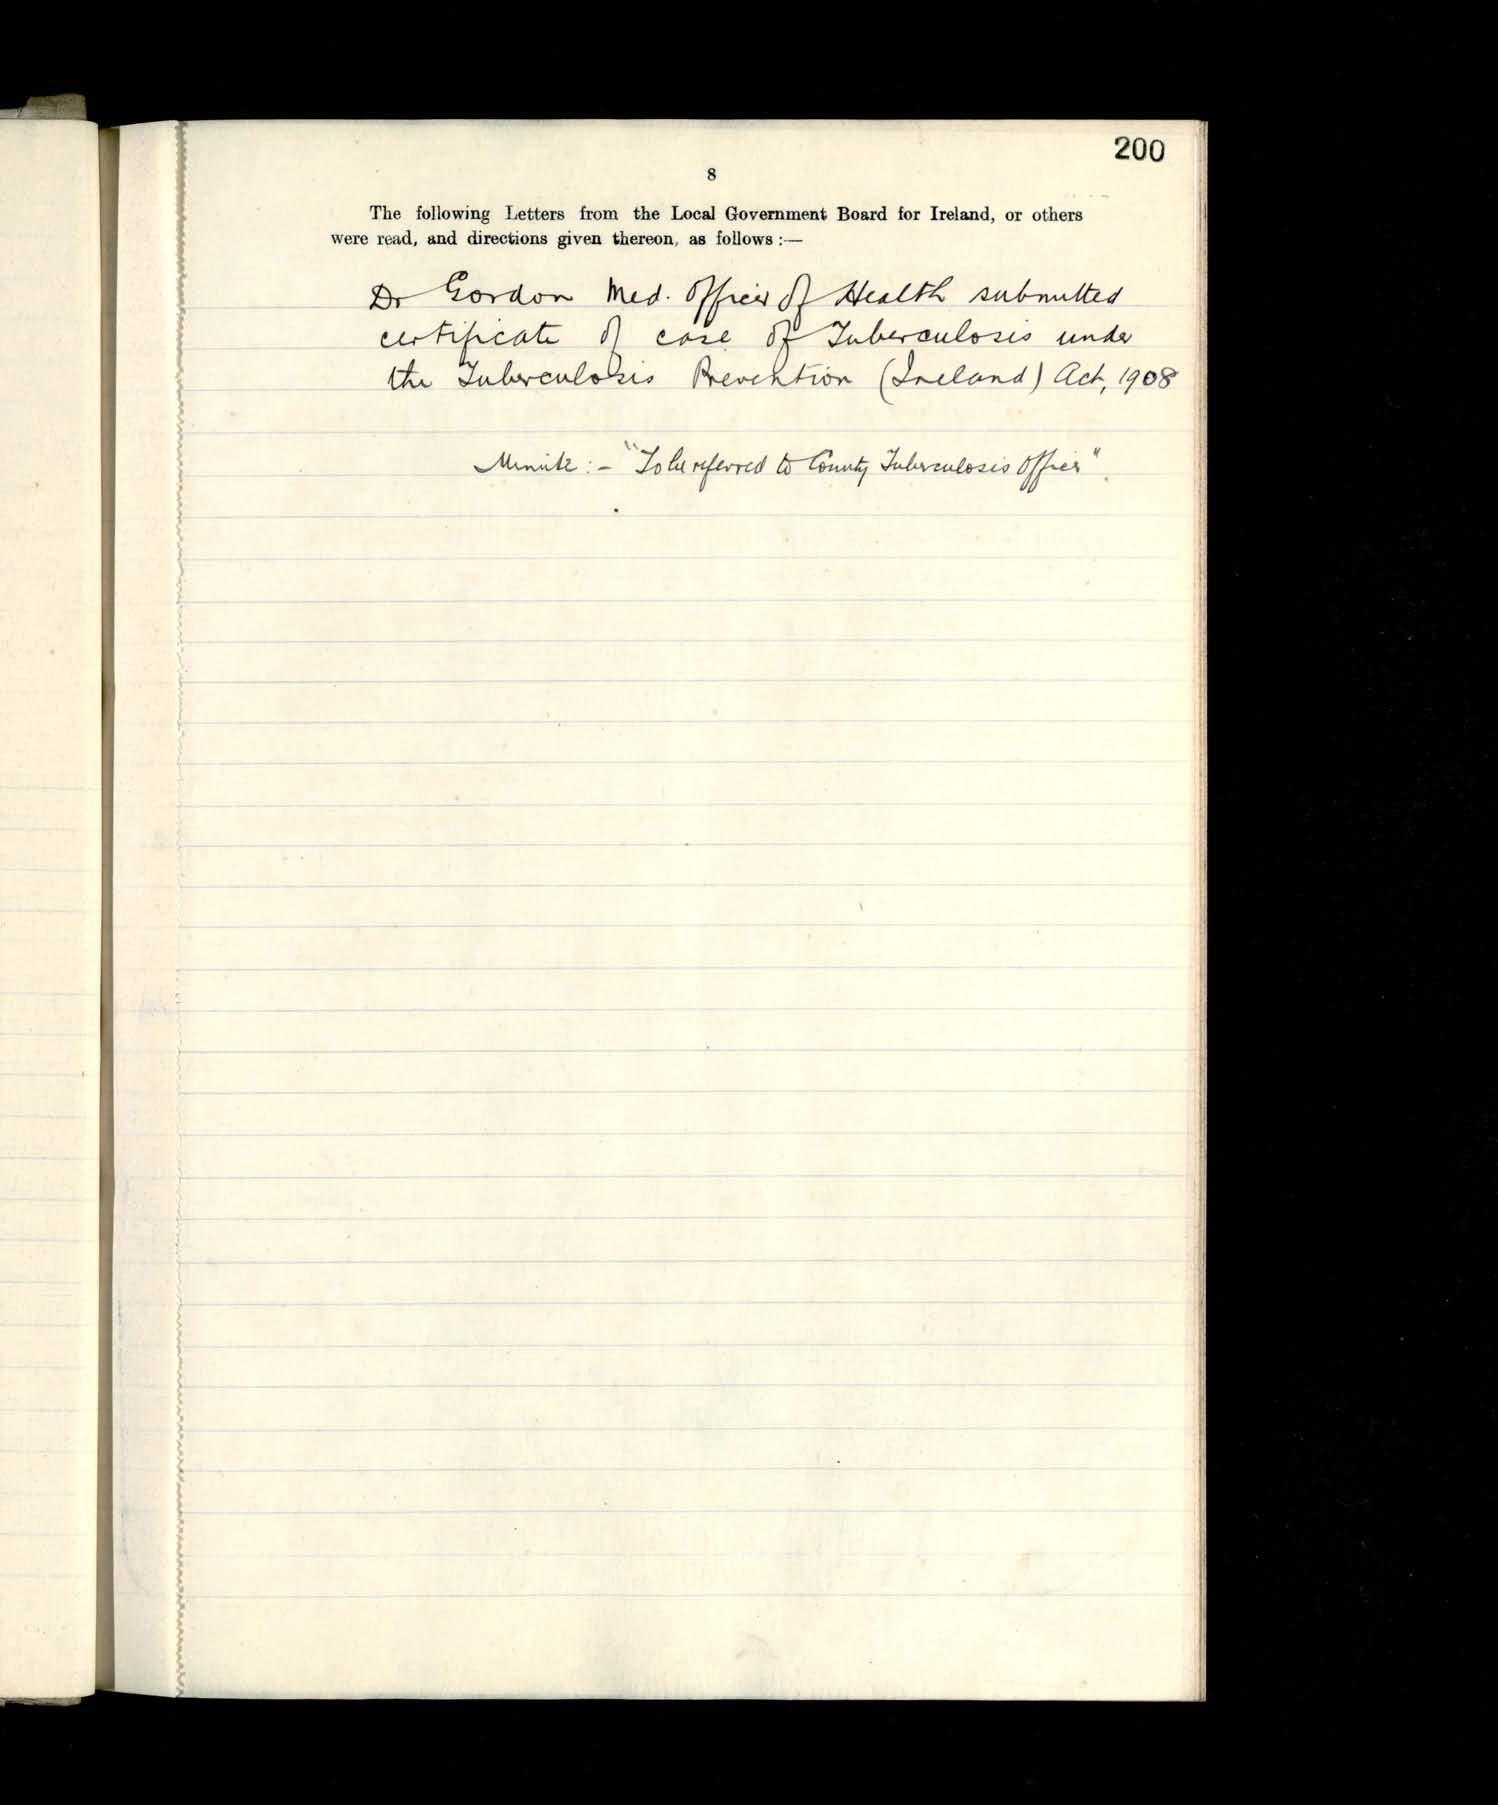 200
8
The following Letters from the Local Government Board for Ireland, or others
were read, and directions given thereon, as follows :—
Dr Gordon Med. Officer of Health submitted
certificate of case of Tuberculosis under
the Tuberculosis Prevention (Ireland) Act, 1908
Minute :- "To be referred to County Tuberculosis Officer".